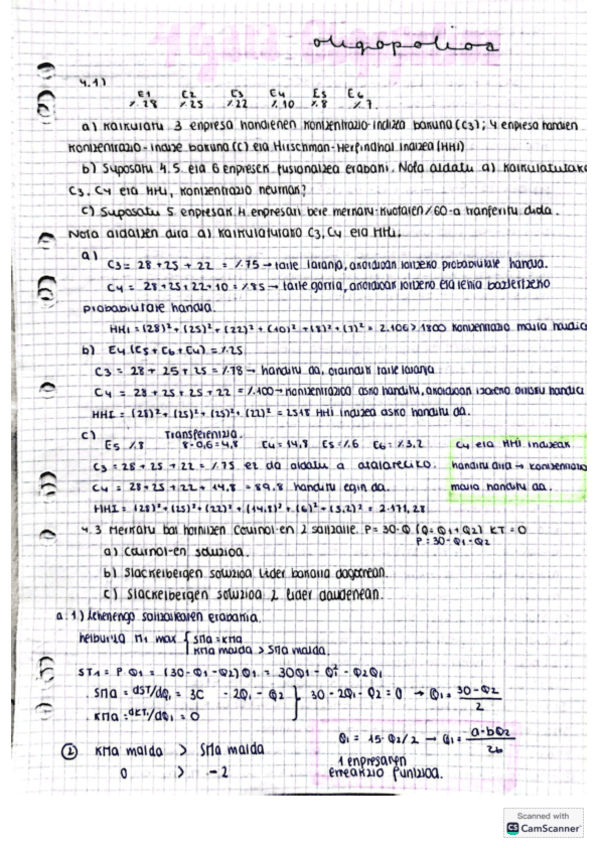 oligopolioa
4.1)
E1 E2 E3 E4 E5 E6
%28 %25 %22 %10 %8 %7
a) Kalkulatu 3 enpresa handienen kontzentrazio-indizea bakuna (C3); 4 enpresa handien
kontzentrazio-indize bakuna (C) eta Hirschman-Herfindhal indizea (HHI)
b) Suposatu 4.5. eta 6 enpresek fusionatzea erabaki. Nola aldatu a) kalkulatutako
C3, C4 eta HHI, kontzentrazio neurriak?
c) Suposatu 5. enpresak 4. enpresari bere merkatu-kuotaren %60-a tranferitu diola.
Nola aldatzen dira a) kalkulaturako C3, C4 eta HHI.
a)
C3 = 28 + 25 + 22 = %75 → talle laranja, akordioan lortzeko probabilitate handia.
C4 = 28+25+22+10 = %85 → talle gorria, akordioan lortzeko eta lehia baztertzeko
probabilitate handia.
HHI = (28)² + (25)² + (22)² + (10)² + (8)² + (7)² = 2.106 > 1800 kontzentrazio maila handia
b) E4 (E5 + E6 + E4) = %25
C3 = 28 + 25 + 25 = %78 → handitu da, oraindik talle laranja
C4 = 28 + 25 + 25 + 22 = %100 → kontzentrazioa asko handitu, akordioan izateko arrisku handia
HHI = (28)² + (25)² + (25)² + (22)² = 2518 HHI indizea asko handitu da.
c) Transferentzia.
E5 %8 8·0,6=4,8 E4 = 14,8 E5 = %6 E6 = %3,2
C4 eta HHI indizeak
C3 = 28 + 25 + 22 = %75 ez da aldatu a atalarekiko.
handitu dira → kontzentrazio
C4 = 28 + 25 + 22 + 14,8 = 89,8 handitu egin da.
maila handitu da.
HHI = (28)² + (25)² + (22)² + (14,8)² + (6)² + (3,2)² = 2.171,28
4.3 Merkatu bat hornitzen Cournot-en 2 saltzaile. P = 30-Q (Q = Q1 + Q2) KT = 0
P = 30 - Q1 - Q2
a) Cournot-en soluzioa.
b) Stackelbergen soluzioa lider bakarra dagoenean.
c) Stackelbergen soluzioa 2 lider daudenean.
a. 1) Lehenengo saltzailearen erabakia.
helburua π1 max { SMa = KMa
KMa malda > SMa malda.
ST1 = P·Q1 = (30-Q1-Q2)Q1 = 30Q1 - Q² - Q2Q1
· SMa = dST/dQ1 = 30 - 2Q1 - Q2 } 30 - 2Q1 - Q2 = 0 → Q1 = 30-Q2 / 2
· KMa = dKT1/dQ1 = 0
② KMa malda > SMa malda
0 > -2
Q1 = 15 - Q2/2 → Q1 = a-bQ2 / 2b
1 enpresaren
erreakzio funtzioa.
Scanned with
CS CamScanner